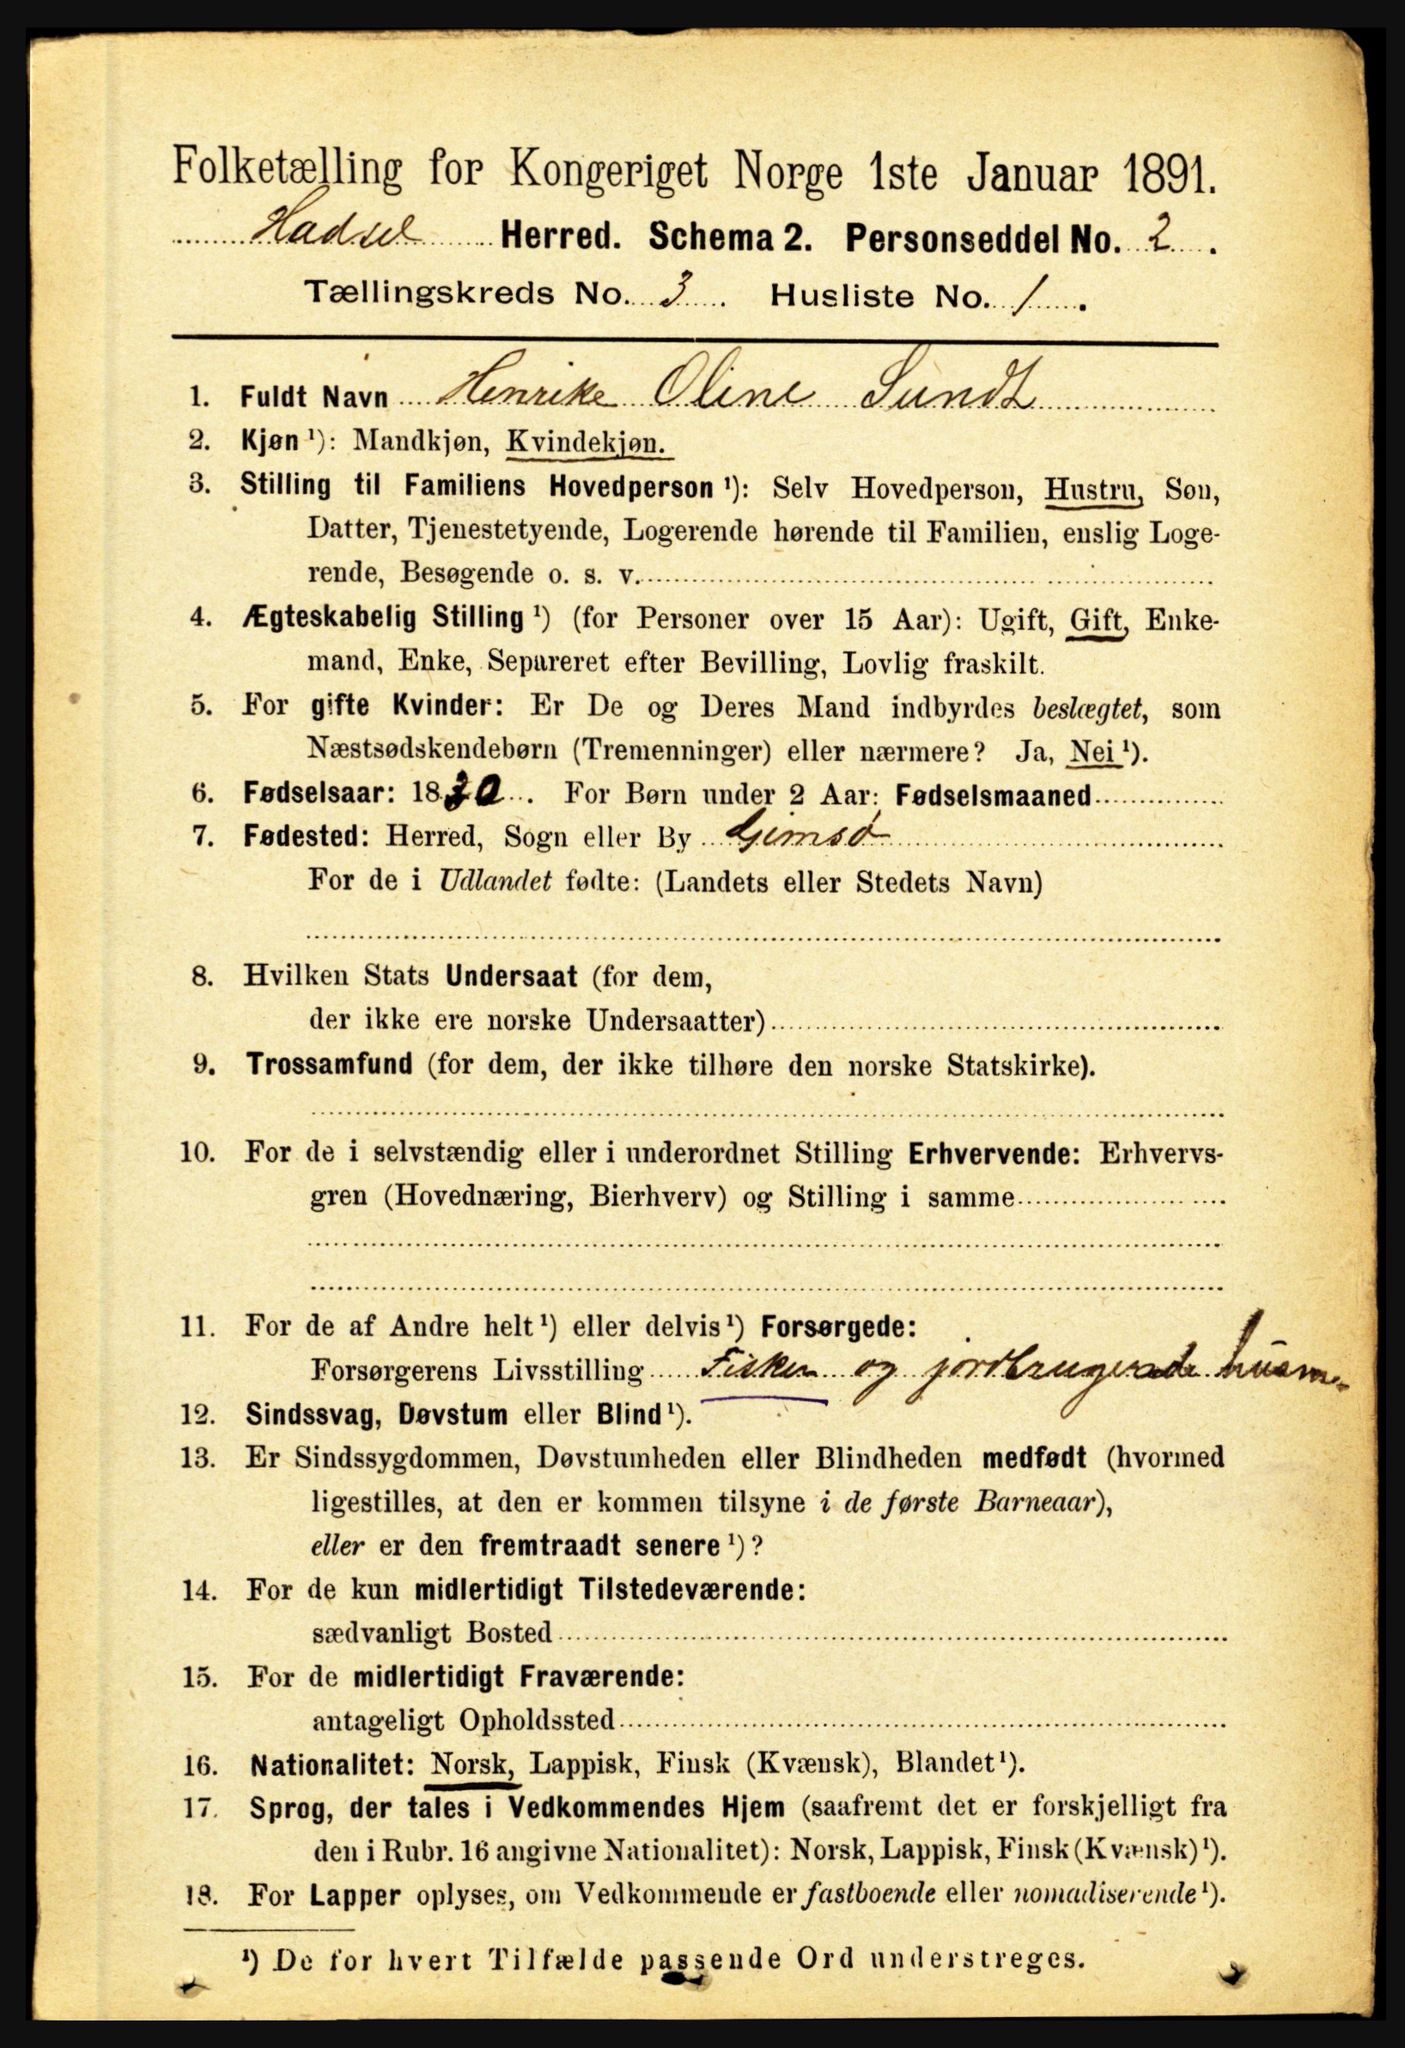 Folketælling for Kongeriget Norge 1ste Januar 1891.
Hadsel Herred. Schema 2. Personseddel No. 2.
Tællingskreds No. 3. Husliste No. 1.
1. Fuldt Navn Henrike Oline Sundt
2. Kjøn ¹): Mandkjøn, Kvindekjøn.
3. Stilling til Familiens Hovedperson ¹): Selv Hovedperson, Hustru, Søn,
Datter, Tjenestetyende, Logerende hørende til Familien, enslig Loge-
rende, Besøgende o. s. v.
4. Ægteskabelig Stilling ¹) (for Personer over 15 Aar): Ugift, Gift, Enke-
mand, Enke, Separeret efter Bevilling, Lovlig fraskilt.
5. For gifte Kvinder: Er De og Deres Mand indbyrdes beslægtet, som
Næstsødskendebørn (Tremenninger) eller nærmere? Ja, Nei ¹).
6. Fødselsaar: 1830. For Børn under 2 Aar: Fødselsmaaned
7. Fødested: Herred, Sogn eller By Gimsø
For de i Udlandet fødte: (Landets eller Stedets Navn)
8. Hvilken Stats Undersaat (for dem,
der ikke ere norske Undersaatter)
9. Trossamfund (for dem, der ikke tilhøre den norske Statskirke).
10. For de i selvstændig eller i underordnet Stilling Erhvervende: Erhvervs-
gren (Hovednæring, Bierhverv) og Stilling i samme
11. For de af Andre helt ¹) eller delvis ¹) Forsørgede:
Forsørgerens Livsstilling Fisker og jordbrugende husm.
12. Sindssvag, Døvstum eller Blind ¹).
13. Er Sindssygdommen, Døvstumheden eller Blindheden medfødt (hvormed
ligestilles, at den er kommen tilsyne i de første Barneaar),
eller er den fremtraadt senere ¹)?
14. For de kun midlertidigt Tilstedeværende:
sædvanligt Bosted
15. For de midlertidigt Fraværende:
antageligt Opholdssted
16. Nationalitet: Norsk, Lappisk, Finsk (Kvænsk), Blandet ¹).
17. Sprog, der tales i Vedkommendes Hjem (saafremt det er forskjelligt fra
den i Rubr. 16 angivne Nationalitet): Norsk, Lappisk, Finsk (Kvænsk) ¹).
18. For Lapper oplyses, om Vedkommende er fastboende eller nomadiserende ¹).
¹) De for hvert Tilfælde passende Ord understreges.